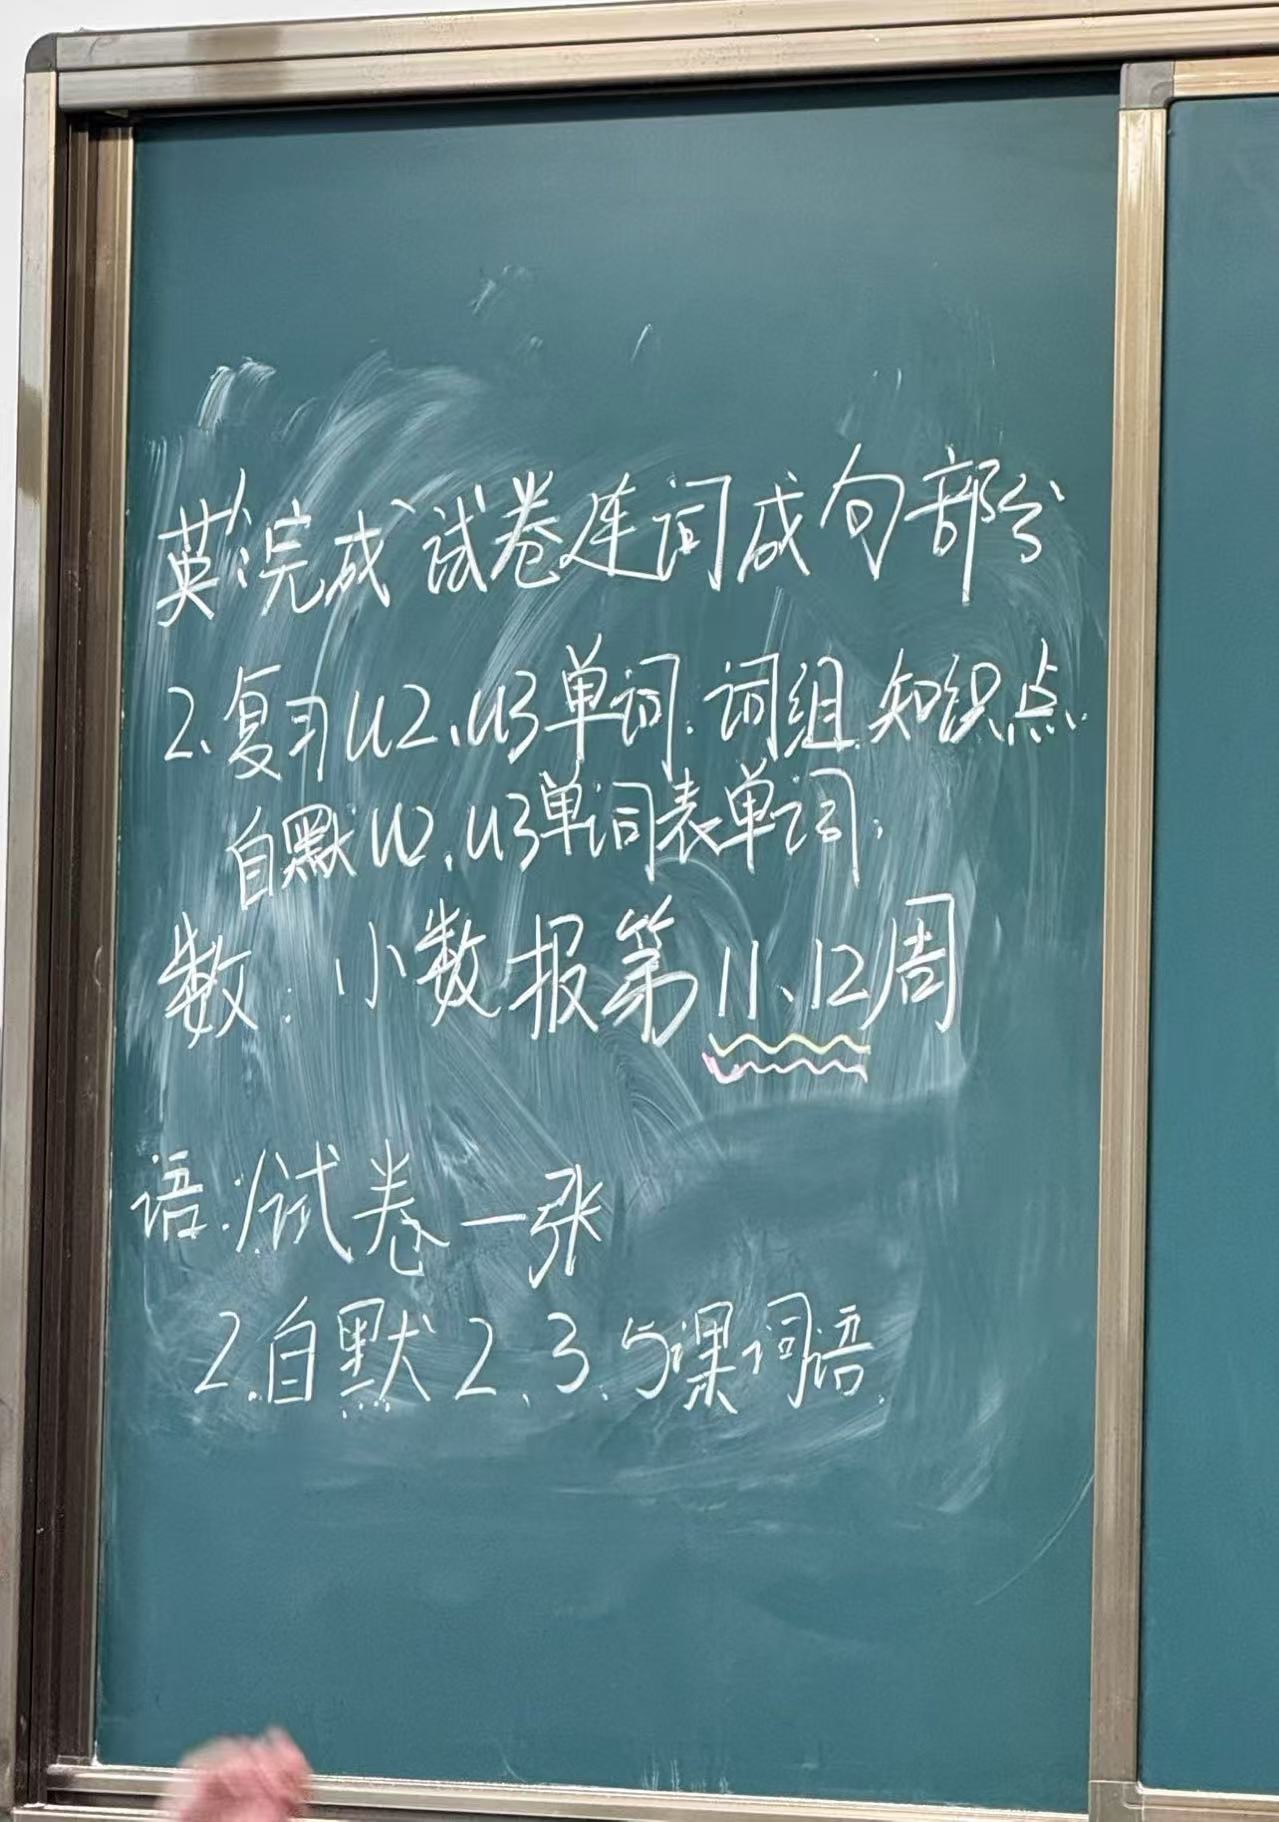 英:1.完成试卷连词成句部分
2.复习U2、U3单词.词组.知识点.
自默U2、U3单词表单词;
数:小数报第11、12周
语:1.试卷一张
2.自默2、3、5课词语.